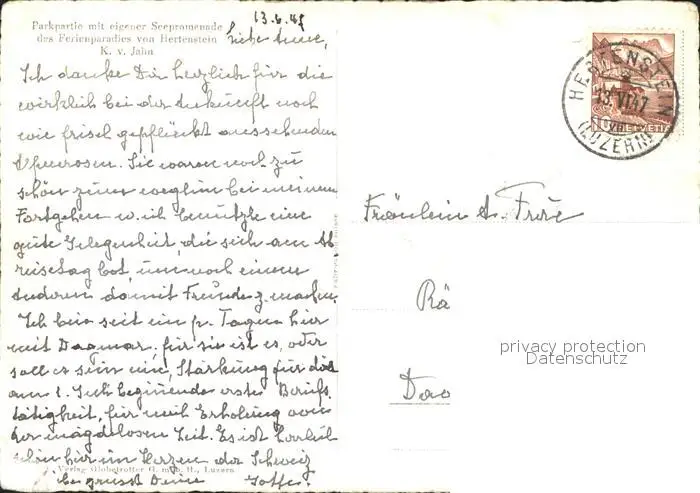 13.6.47
Parkpartie mit eigener Seepromenade
des Ferienparadies von Hertenstein
K. v. Jahn
Liebe Anne,
Ich danke Dir herzlich für die
wirklich bei der Ankunft noch
wie frisch gepflückt aussehenden
Alpenrosen. Sie waren noch zu
schön zum weg bei meinem
Fortgehen u. ich benützte eine
gute Gelegenheit, die sich am Ab
reisetag bot, um noch einem
Anderen damit Freude z. machen.
Ich bin seit ein p. Tagen hier
mit Dagmar. für sie ist es, oder
soll es sein eine, Stärkung für das
am 1. Juli beginnende erste Berufs
tätigkeit, für mich Erholung von
der mägdelosen Zeit. Es ist herrlich
schön hier im Herzen der Schweiz
Verlag Globetrotter G. m. b. H., Luzern
es grüsst Deine
HERTENSTEIN
13.VI 47
(LUZERN)
HELVETIA
Fräulein A. Frei
Rä
Dav
privacy protection
Datenschutz